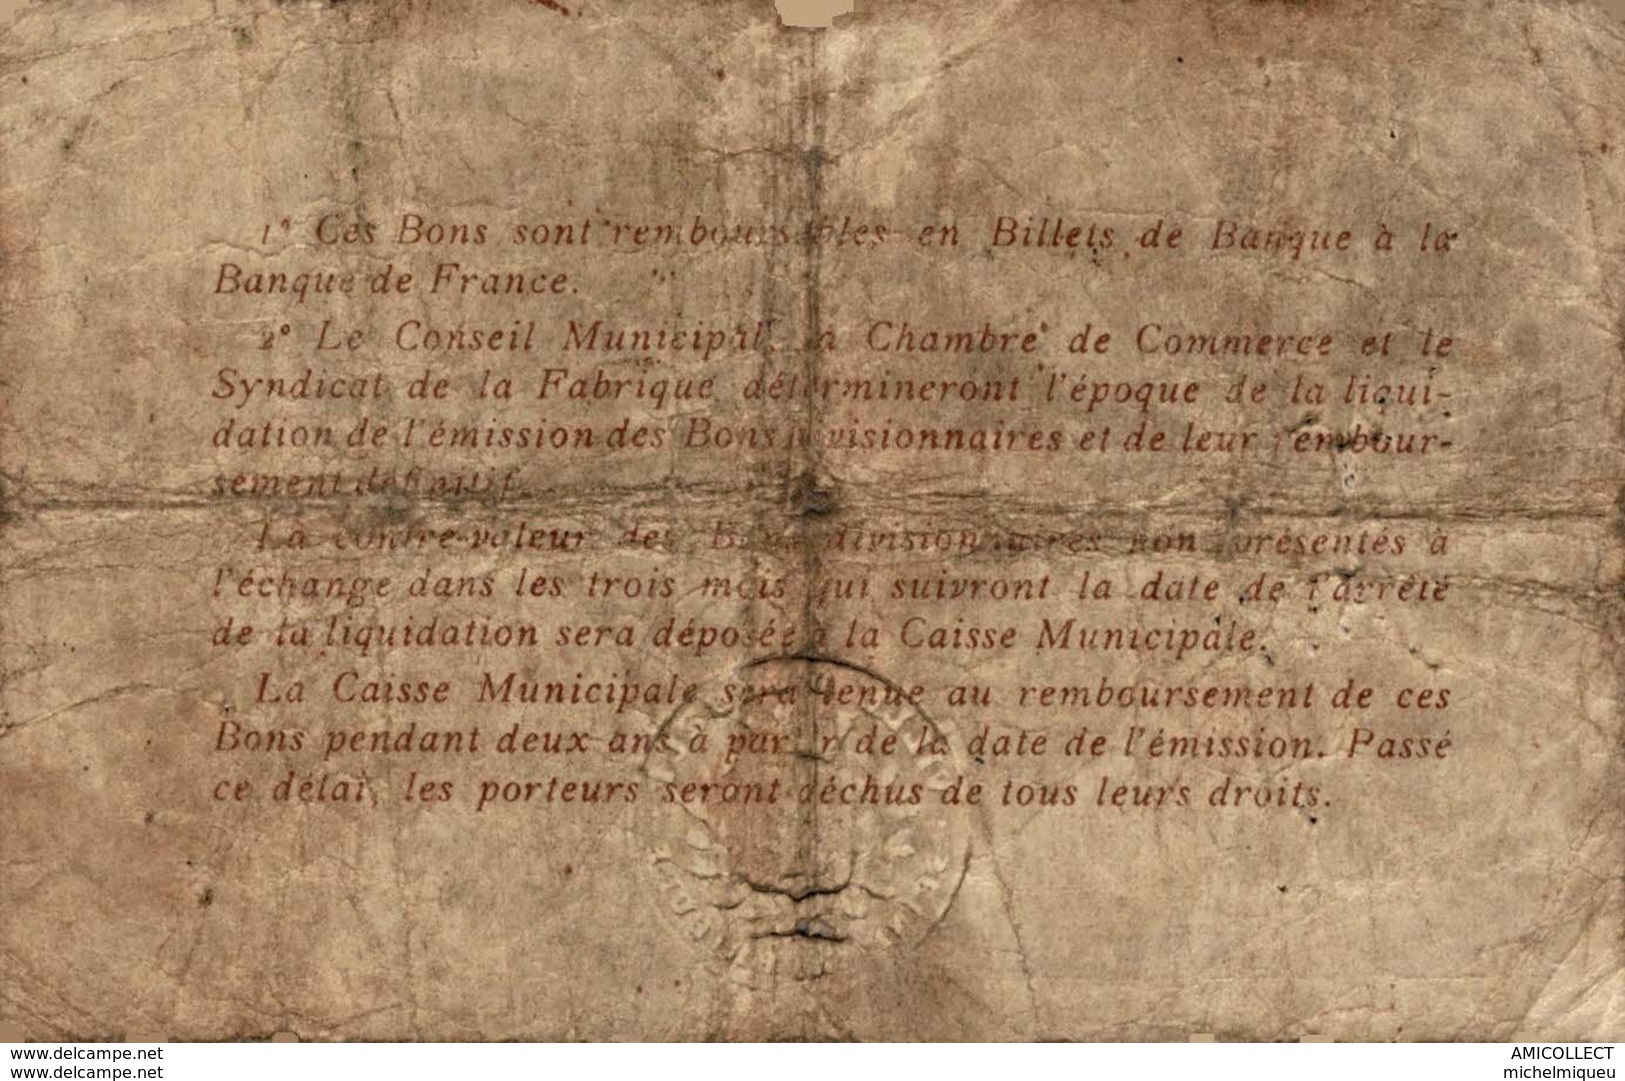 1° Ces Bons sont remboursables en Billets de Banque à la
Banque de France.
2° Le Conseil Municipal, la Chambre de Commerce et le
Syndicat de la Fabrique détermineront l'époque de la liqui-
dation de l'émission des Bons divisionnaires et de leur rembour-
sement définitif.
La contre-valeur des Bons divisionnaires non présentés à
l'échange dans les trois mois qui suivront la date de l'arrêté
de la liquidation sera déposée à la Caisse Municipale.
La Caisse Municipale sera tenue au remboursement de ces
Bons pendant deux ans à partir de la date de l'émission. Passé
ce délai, les porteurs seront déchus de tous leurs droits.
www.delcampe.net
www.delcampe.com
AMICOLLECT
michelmiqueu